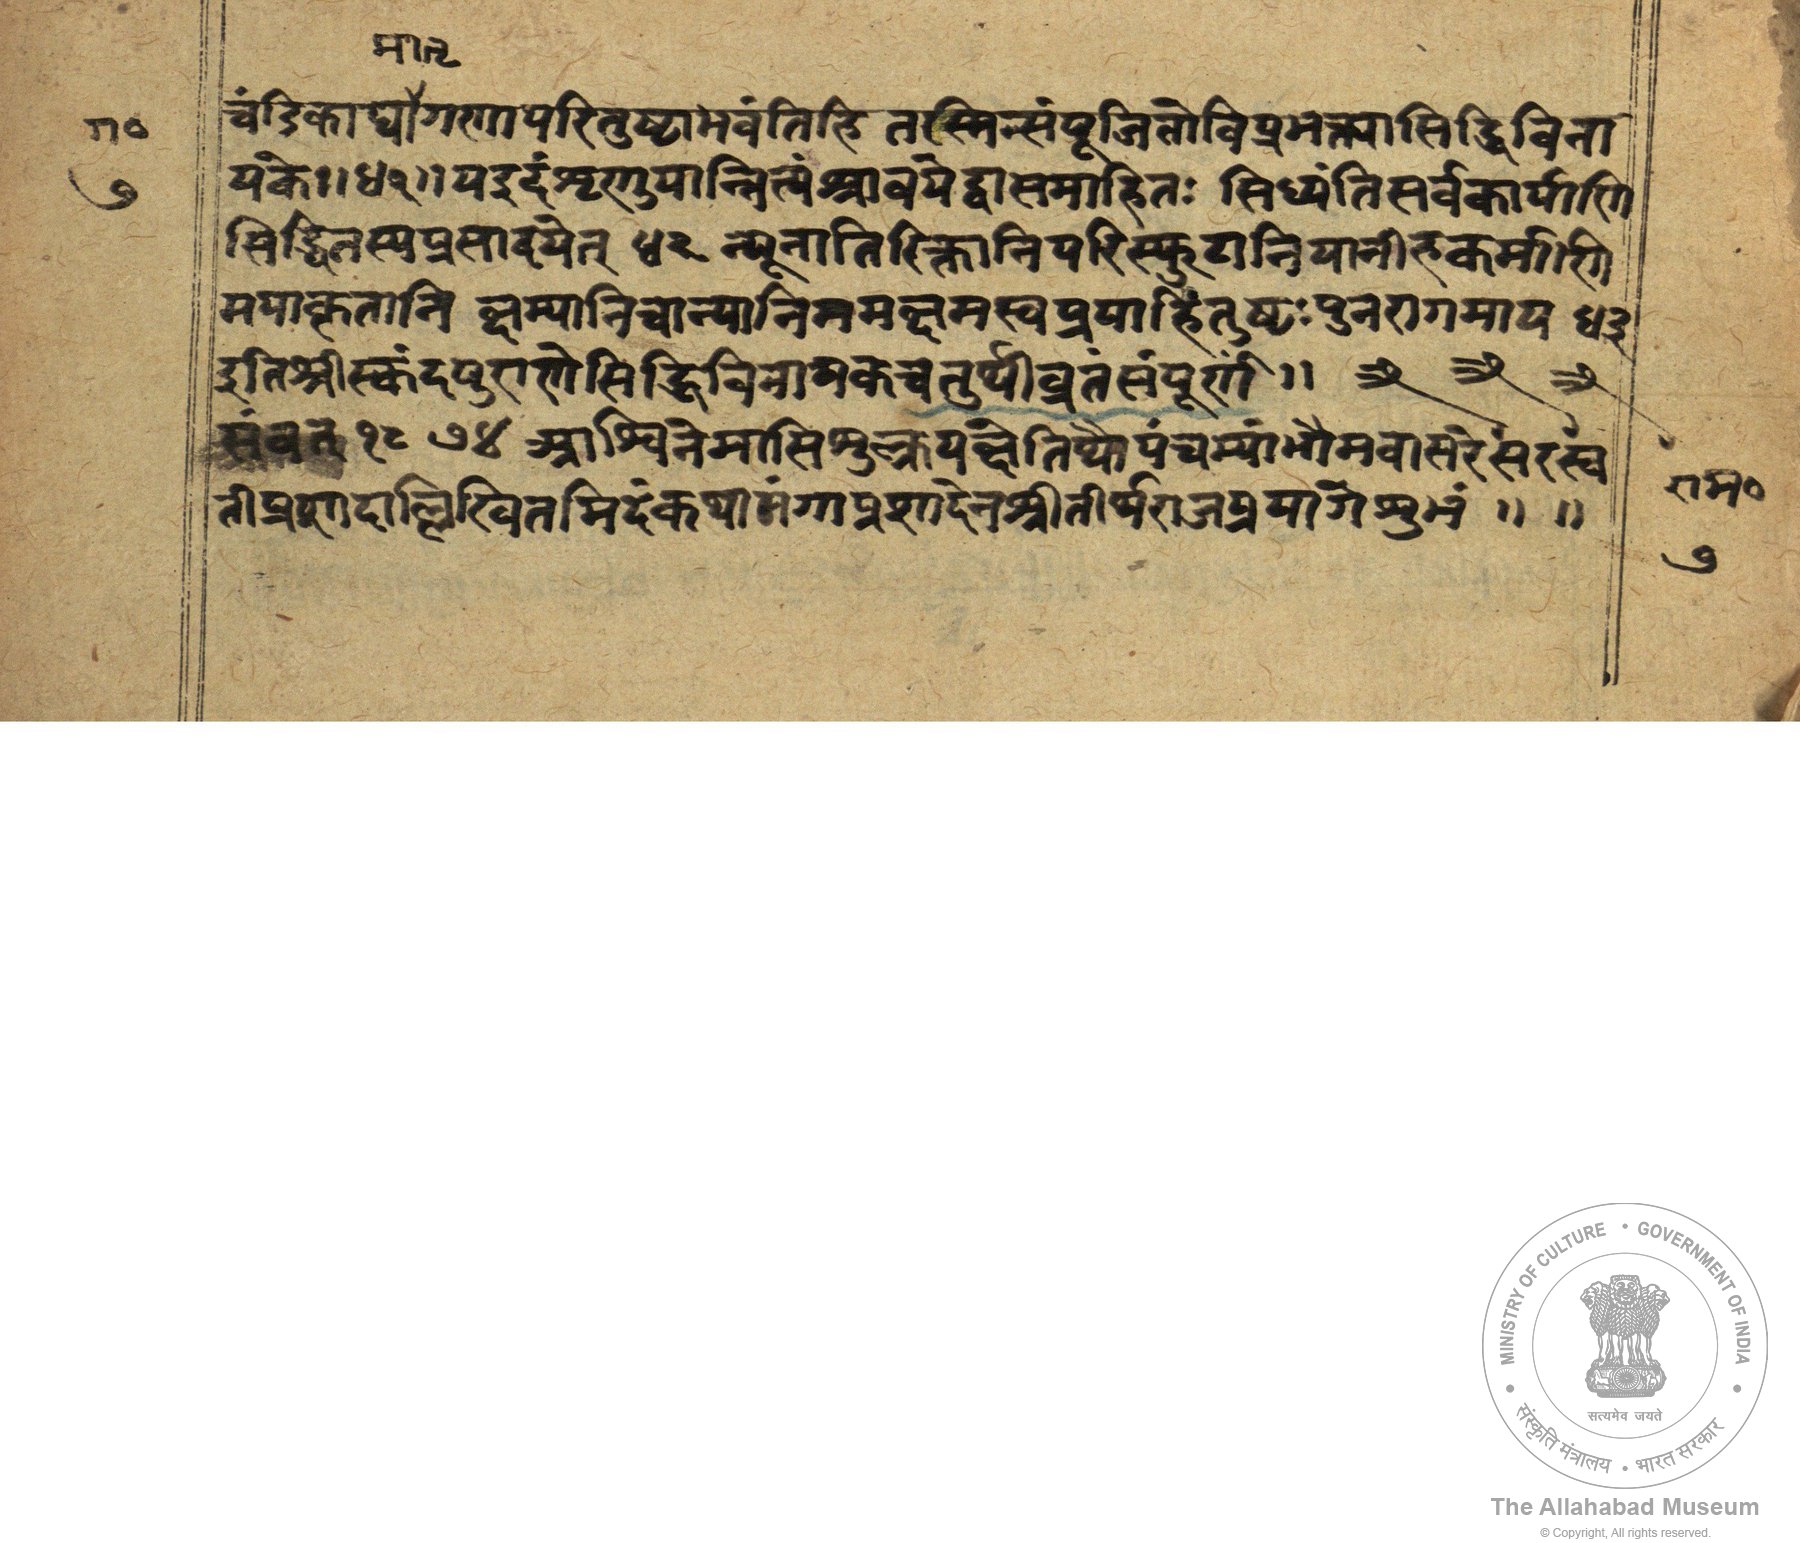 मातृ
चंडिकाद्यागणापरितुष्टाभवंतिहि तस्मिन्संपूजितोविप्रभक्त्यासिद्धिविना
ग०
७
यके॥५१॥यइदंशृणुयान्नित्यंश्रावयेद्वासमाहितः सिध्यंतिसर्वकार्याणि
सिद्धितस्यप्रसादयेत् ५२ न्यूनातिरिक्तानिपरिस्फुटानियानीहकर्माणि
मयाकृतानि क्षम्यानिचान्यानिममक्षमस्वप्रयाहितुष्टःपुनरागमाय ५३
इतिश्रीस्कंदपुराणेसिद्धिविनायकचतुर्थीव्रतंसंपूर्णं॥
संवत् १८७४ आश्विनेमासिशुक्लपक्षेतिथौपंचम्यांभौमवासरेसरस्व
तीप्रशादाल्लिखितमिदंकथामंगाप्रशादेनश्रीतीर्थराजप्रयागेशुभं ॥ ॥
राम०
७
MINISTRY OF CULTURE • GOVERNMENT OF INDIA
सत्यमेव जयते
संस्कृति मंत्रालय • भारत सरकार
The Allahabad Museum
© Copyright, All rights reserved.